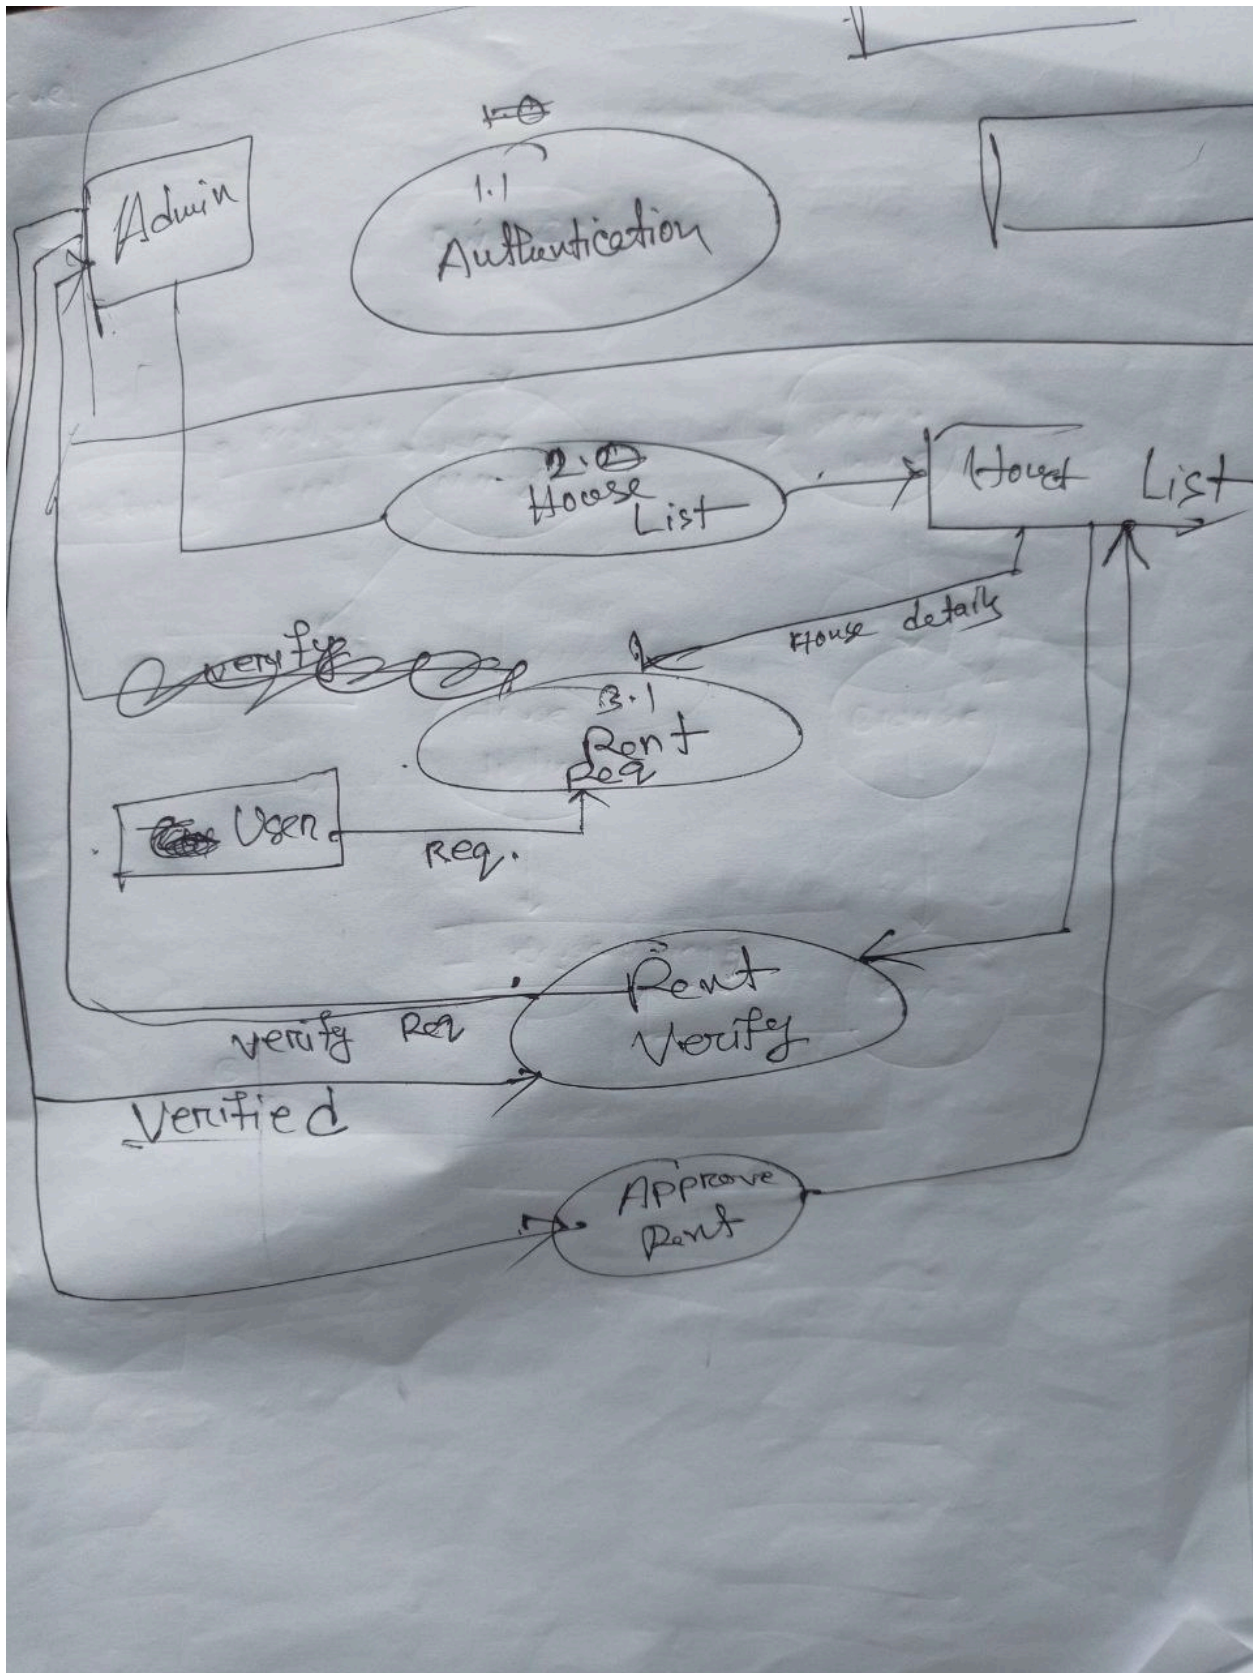 1.0
1.1
Admin
Authentication
2.0
House
List
House List
House details
verify
3.1
Rent
Req
User
Req.
Rent
Verify
Verify Req
Verified
Approve
Rent